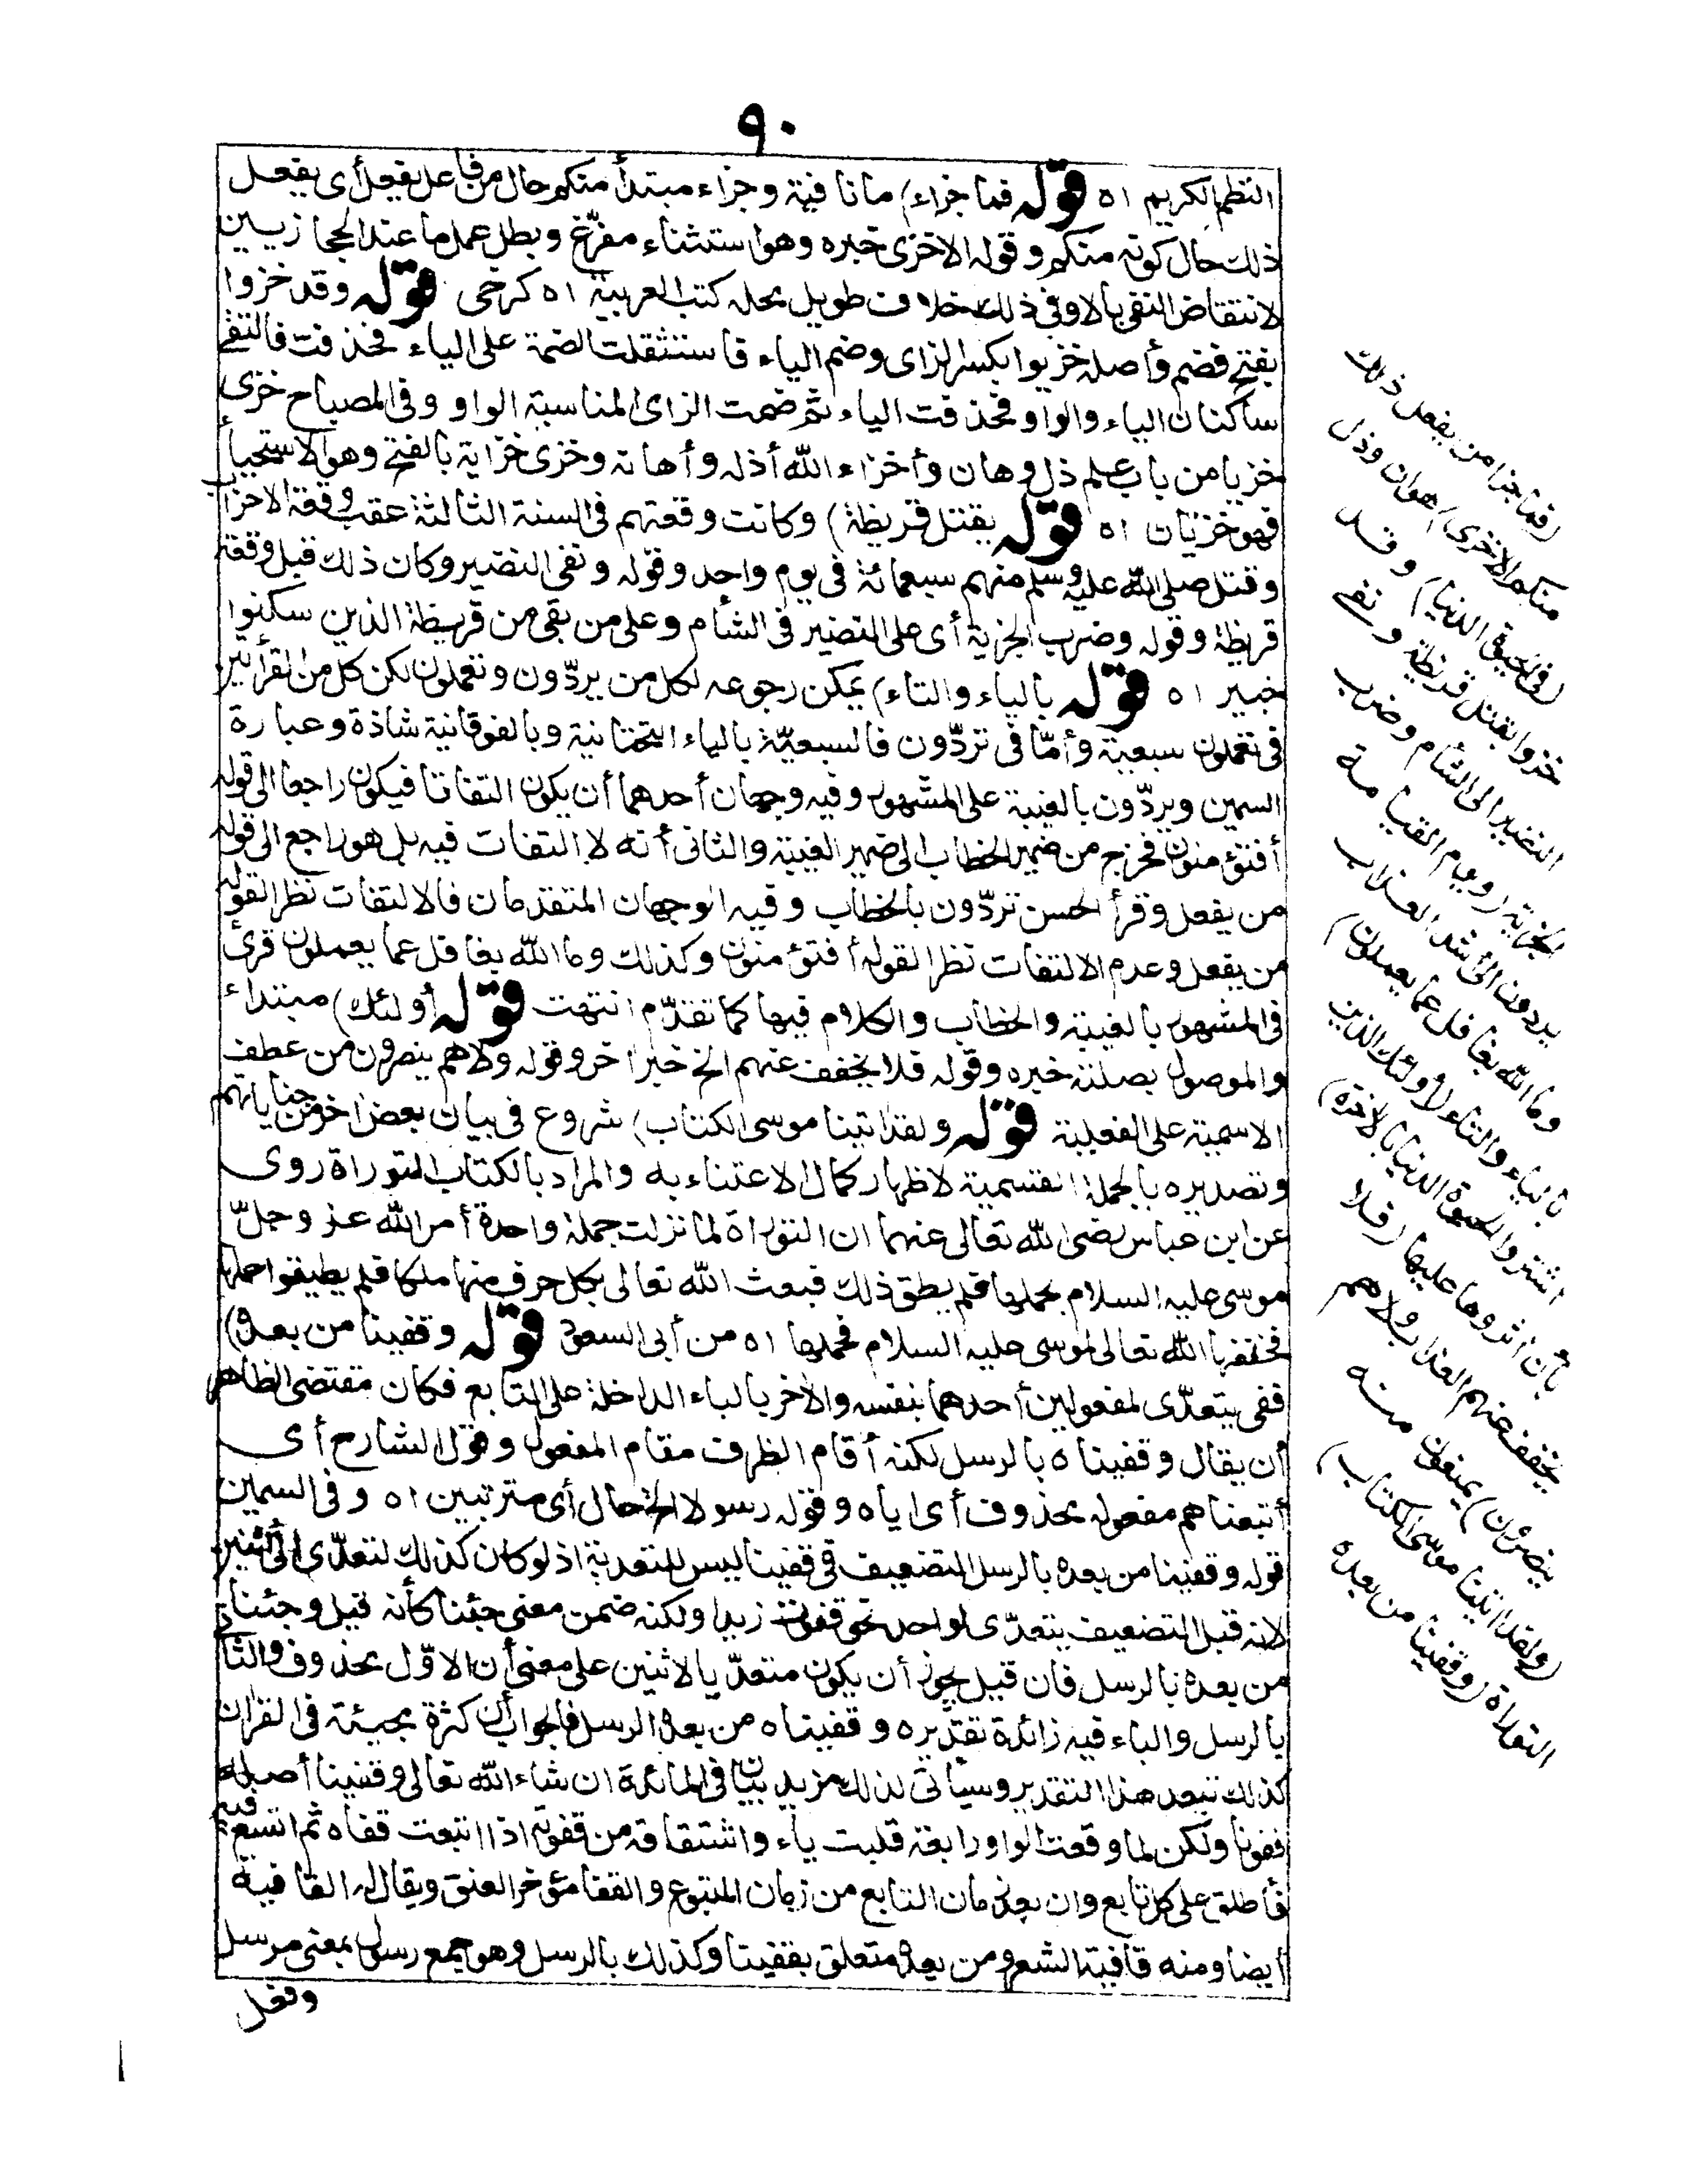 ٩٠
النظم الكريم اه قوله فما جزاء) ما نافية وجزاء مبتدأ منكم حال من فاعل يفعل أى يفعل
ذلك حال كونه منكم وقوله الاخزى خبره وهو استثناء مفرّغ وبطل عمل ما عند الحجازيين
لانتقاض النفى بالا وفى ذلك خلاف طويل محله كتب العربية اه كرخى قوله وقد خزوا
بفتح فضم وأصله خزيوا بكسر الزاى وضم الياء فاستثقلت الضمة على الياء فحذفت فالتقى
ساكنان الياء والواو فحذفت الياء ثم ضمت الزاى لمناسبة الواو وفى المصباح خزى
خزيا من باب علم ذل وهان وأخزاه الله أذله وأهانه وخزى خزاية بالفتح وهو الاستحياء
فهو خزيان اه قوله بقتل قريظة) وكانت وقعتهم فى السنة الثالثة عقب وقعة الاحزاب
وقتل صلى الله عليه وسلم منهم سبعمائة فى يوم واحد وقوله ونفى النضير وكان ذلك قبل وقعة
قريظة وقوله وضرب الجزية أى على النضير فى الشأم وعلى من بقى من قريظة الذين سكنوا
خيبر اه قوله بالياء والتاء) يمكن رجوعه لكل من يردّون وتعملون لكن كل من القرأتين
فى تعملون سبعية وأمّا فى تردّون فالسبعيّة بالياء التحتانية وبالفوقانية شاذة وعبارة
السمين ويردّون بالغيبة على المشهور وفيه وجهان أحدهما أن يكون التفاتا فيكون راجعا الى قوله
أفتؤمنون فخرج من ضمير الخطاب الى ضمير الغيبة والثانى أنه لا التفات فيه بل هو راجع الى قوله
من يفعل وقرأ الحسن تردّون بالخطاب وفيه الوجهان المتقدمان فالالتفات نظرا لقوله
من يفعل وعدم الالتفات نظرا لقوله أفتؤمنون وكذلك وما الله بغافل عما يعملون قرئ
فى المشهور بالغيبة والخطاب والكلام فيها كما تقدّم انتهت قوله أولئك) مبتداء
والموصول بصلته خبره وقوله فلا يخفف عنهم الخ خبر اخر وقوله ولا هم ينصرون من عطف
الاسمية على الفعلية قوله ولقد اتينا موسى الكتاب) شروع فى بيان بعض اخر من جناياتهم
وتصديره بالجملة القسمية لاظهار كمال الاعتناء به والمراد بالكتاب التوراة روى
عن ابن عباس رضى الله تعالى عنهما ان التوراة لما نزلت جملة واحدة أمر الله عز وجلّ
موسى عليه السلام بحملها فلم يطق ذلك فبعث الله تعالى بكل حرف منها ملكا فلم يطيقوا حملها
فخففها الله تعالى لموسى عليه السلام فحملها اه من أبى السعود قوله وقفينا من بعده)
قفى يتعدّى لمفعولين أحدهما بنفسه والأخر بالباء الداخلة على التابع فكان مقتضى الظاهر
أن يقال وقفيناه بالرسل لكنه أقام الظرف مقام المفعول وقول الشارح أى
أتبعناهم مفعوله محذوف أى اياه وقوله رسولا الخ حال أى مترتبين اه وفى السمين
قوله وقفينا من بعده بالرسل التضعيف فى قفينا ليس للتعدية اذ لو كان كذلك لتعدّى الى اثنين
لانه قبل التضعيف يتعدّى لواحد نحو قفوت زيدا ولكنه ضمن معنى جئنا كأنه قيل وجئنا
من بعده بالرسل فان قيل يجوز أن يكون متعدّيا لاثنين على معنى أن الاوّل محذوف والثانى
بالرسل والباء فيه زائدة تقديره وقفيناه من بعده الرسل فالجواب أن كثرة مجيئه فى القران
كذلك تبعد هذا التقدير وسيأتى لذلك مزيد بيان فى المائدة ان شاء الله تعالى وقفينا أصله
قفونا ولكن لما وقعت الواو رابعة قلبت ياء واشتقاقه من قفوته اذا اتبعت قفاه ثم اتسع فيه
فأطلق على كل تابع وان بعد زمان التابع من زمان المتبوع والقفا مؤخر العنق ويقال له القافية
أيضا ومنه قافية الشعر ومن بعده متعلق بقفينا وكذلك بالرسل وهو جمع رسول بمعنى مرسل
وفعل
(فما جزاء من يفعل ذلك
منكم الاخزى) هوان وذل
(فى الحيوة الدنيا) وقد
خزوا بقتل قريظة ونفى
النضير الى الشأم وضرب
الجزية (ويوم القيامة
يردون الى أشد العذاب
وما الله بغافل عما يعملون)
بالياء والتاء (أولئك الذين
اشتروا الحيوة الدنيا بالاخرة)
بأن أثروها عليها (فلا
يخفف عنهم العذاب ولا هم
ينصرون) يمنعون منه
(ولقد اتينا موسى الكتاب)
التوراة (وقفينا من بعده